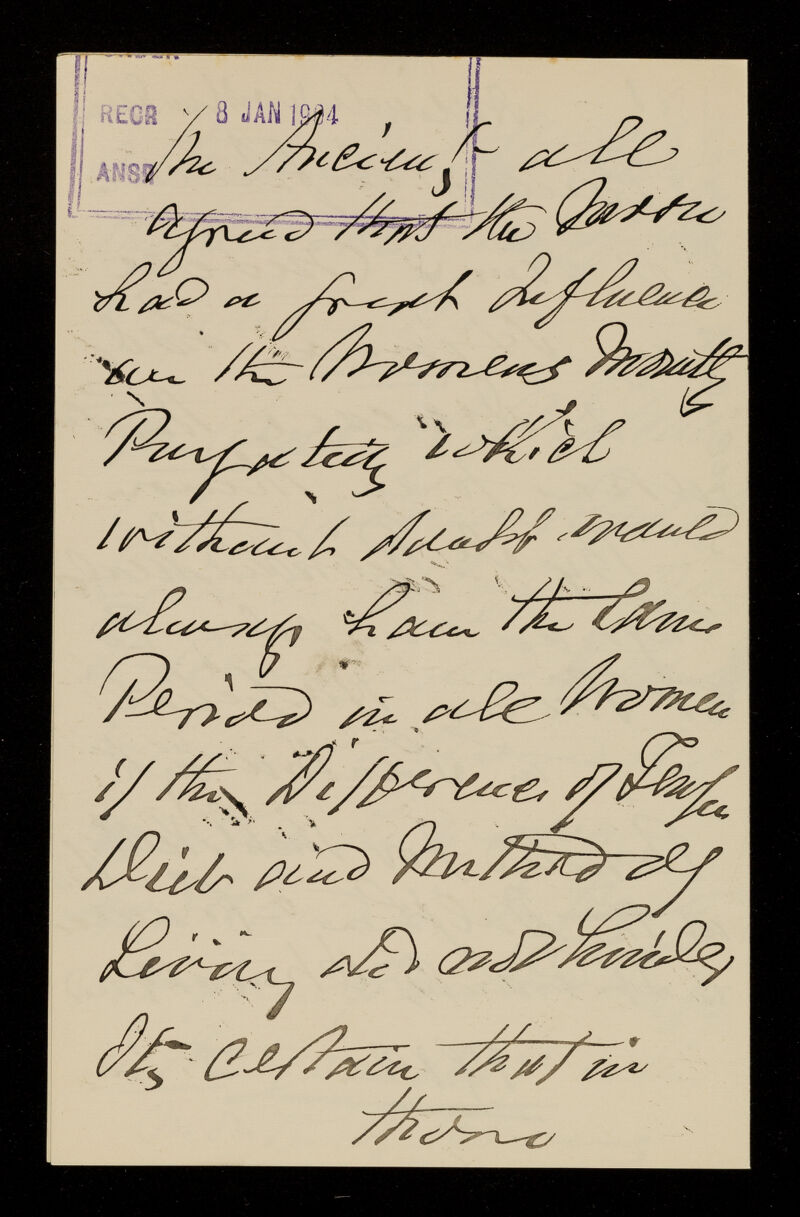 RECR 8 JAN 1904
ANSR
The Ancients all
agreed that the Moon
had a great Influence
on the Womens Monthly
Purgations which
without doubt would
always have the same
Period in all Women
if the Difference of Temper
Diet and Method of
Living did not hinder
Its certain that in
those